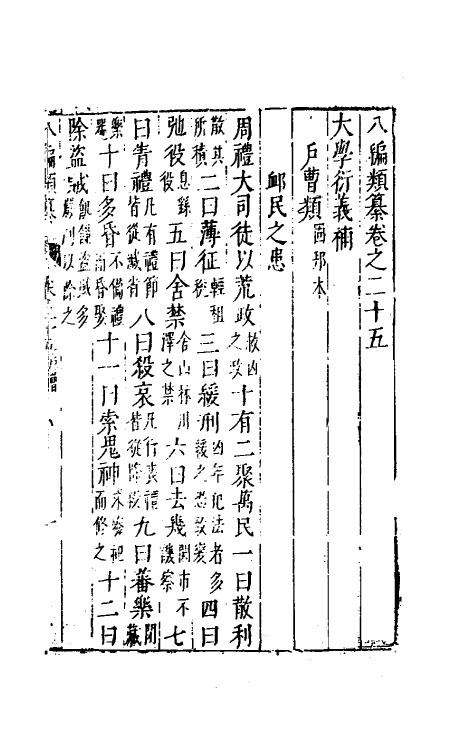 八編類纂卷之二十五
大學衍義補
戶曹類固邦本
䘏民之患
周禮大司徒以荒政救凶之政十有二聚萬民一曰散利
散其所積二曰薄征輕租稅三曰緩刑凶年犯法者多緩之恐致變四曰
弛役息繇役五曰舍禁舍山林川澤之禁六曰去幾關市不譏察七
曰眚禮凡有禮節皆從減省八曰殺哀凡行喪禮皆從降殺九曰蕃樂閉藏
樂器十曰多昏不備禮而昏娶十一曰索鬼神求廢祀而修之十二曰
除盜賊飢饉盜賊多以除之
八編類纂